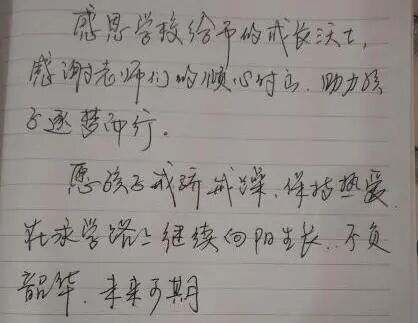 感恩学校给予的成长沃土,
感谢老师们的倾心付出.助力孩
子逐梦而行。
愿孩子戒骄戒躁.保持热爱.
在求学路上继续向阳生长..不负
韶华.未来可期